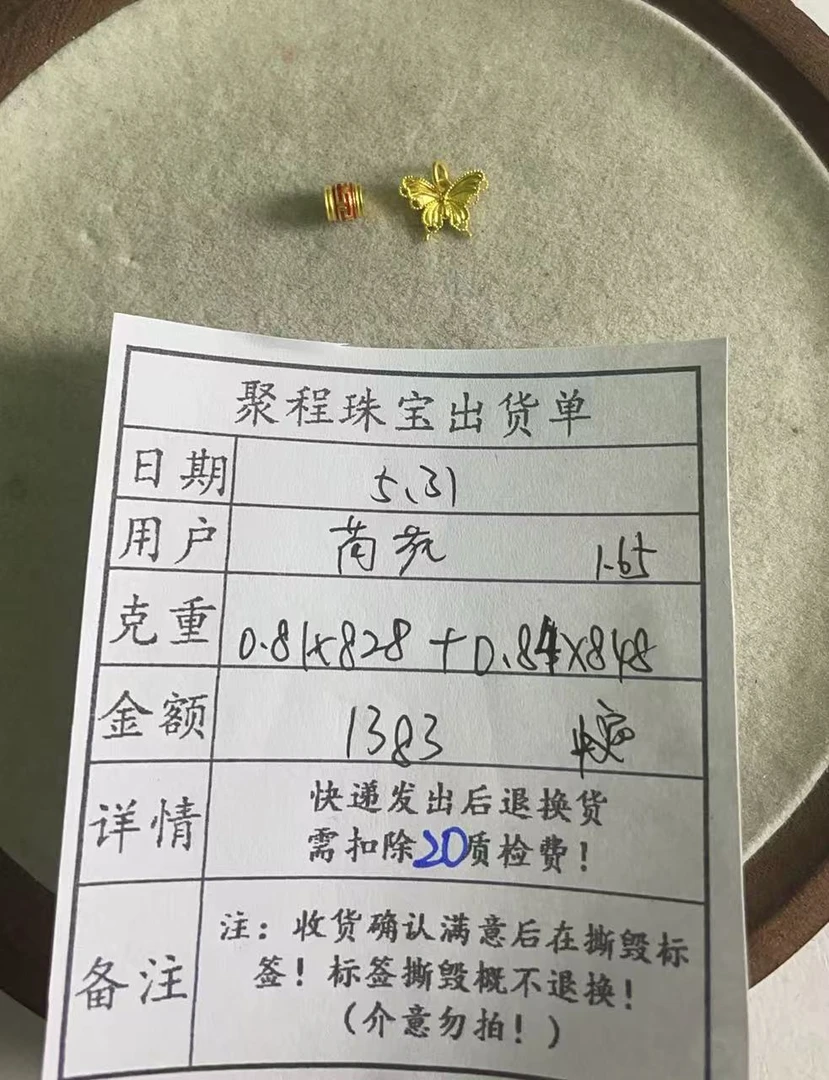 聚程珠宝出货单
日期 5.31
用户 1.65
克重 0.81×828+0.84×848
金额 1383
详情 快递发出后退换货
需扣除20质检费!
备注 注:收货确认满意后在撕毁标
签!标签撕毁概不退换!
(介意勿拍!)